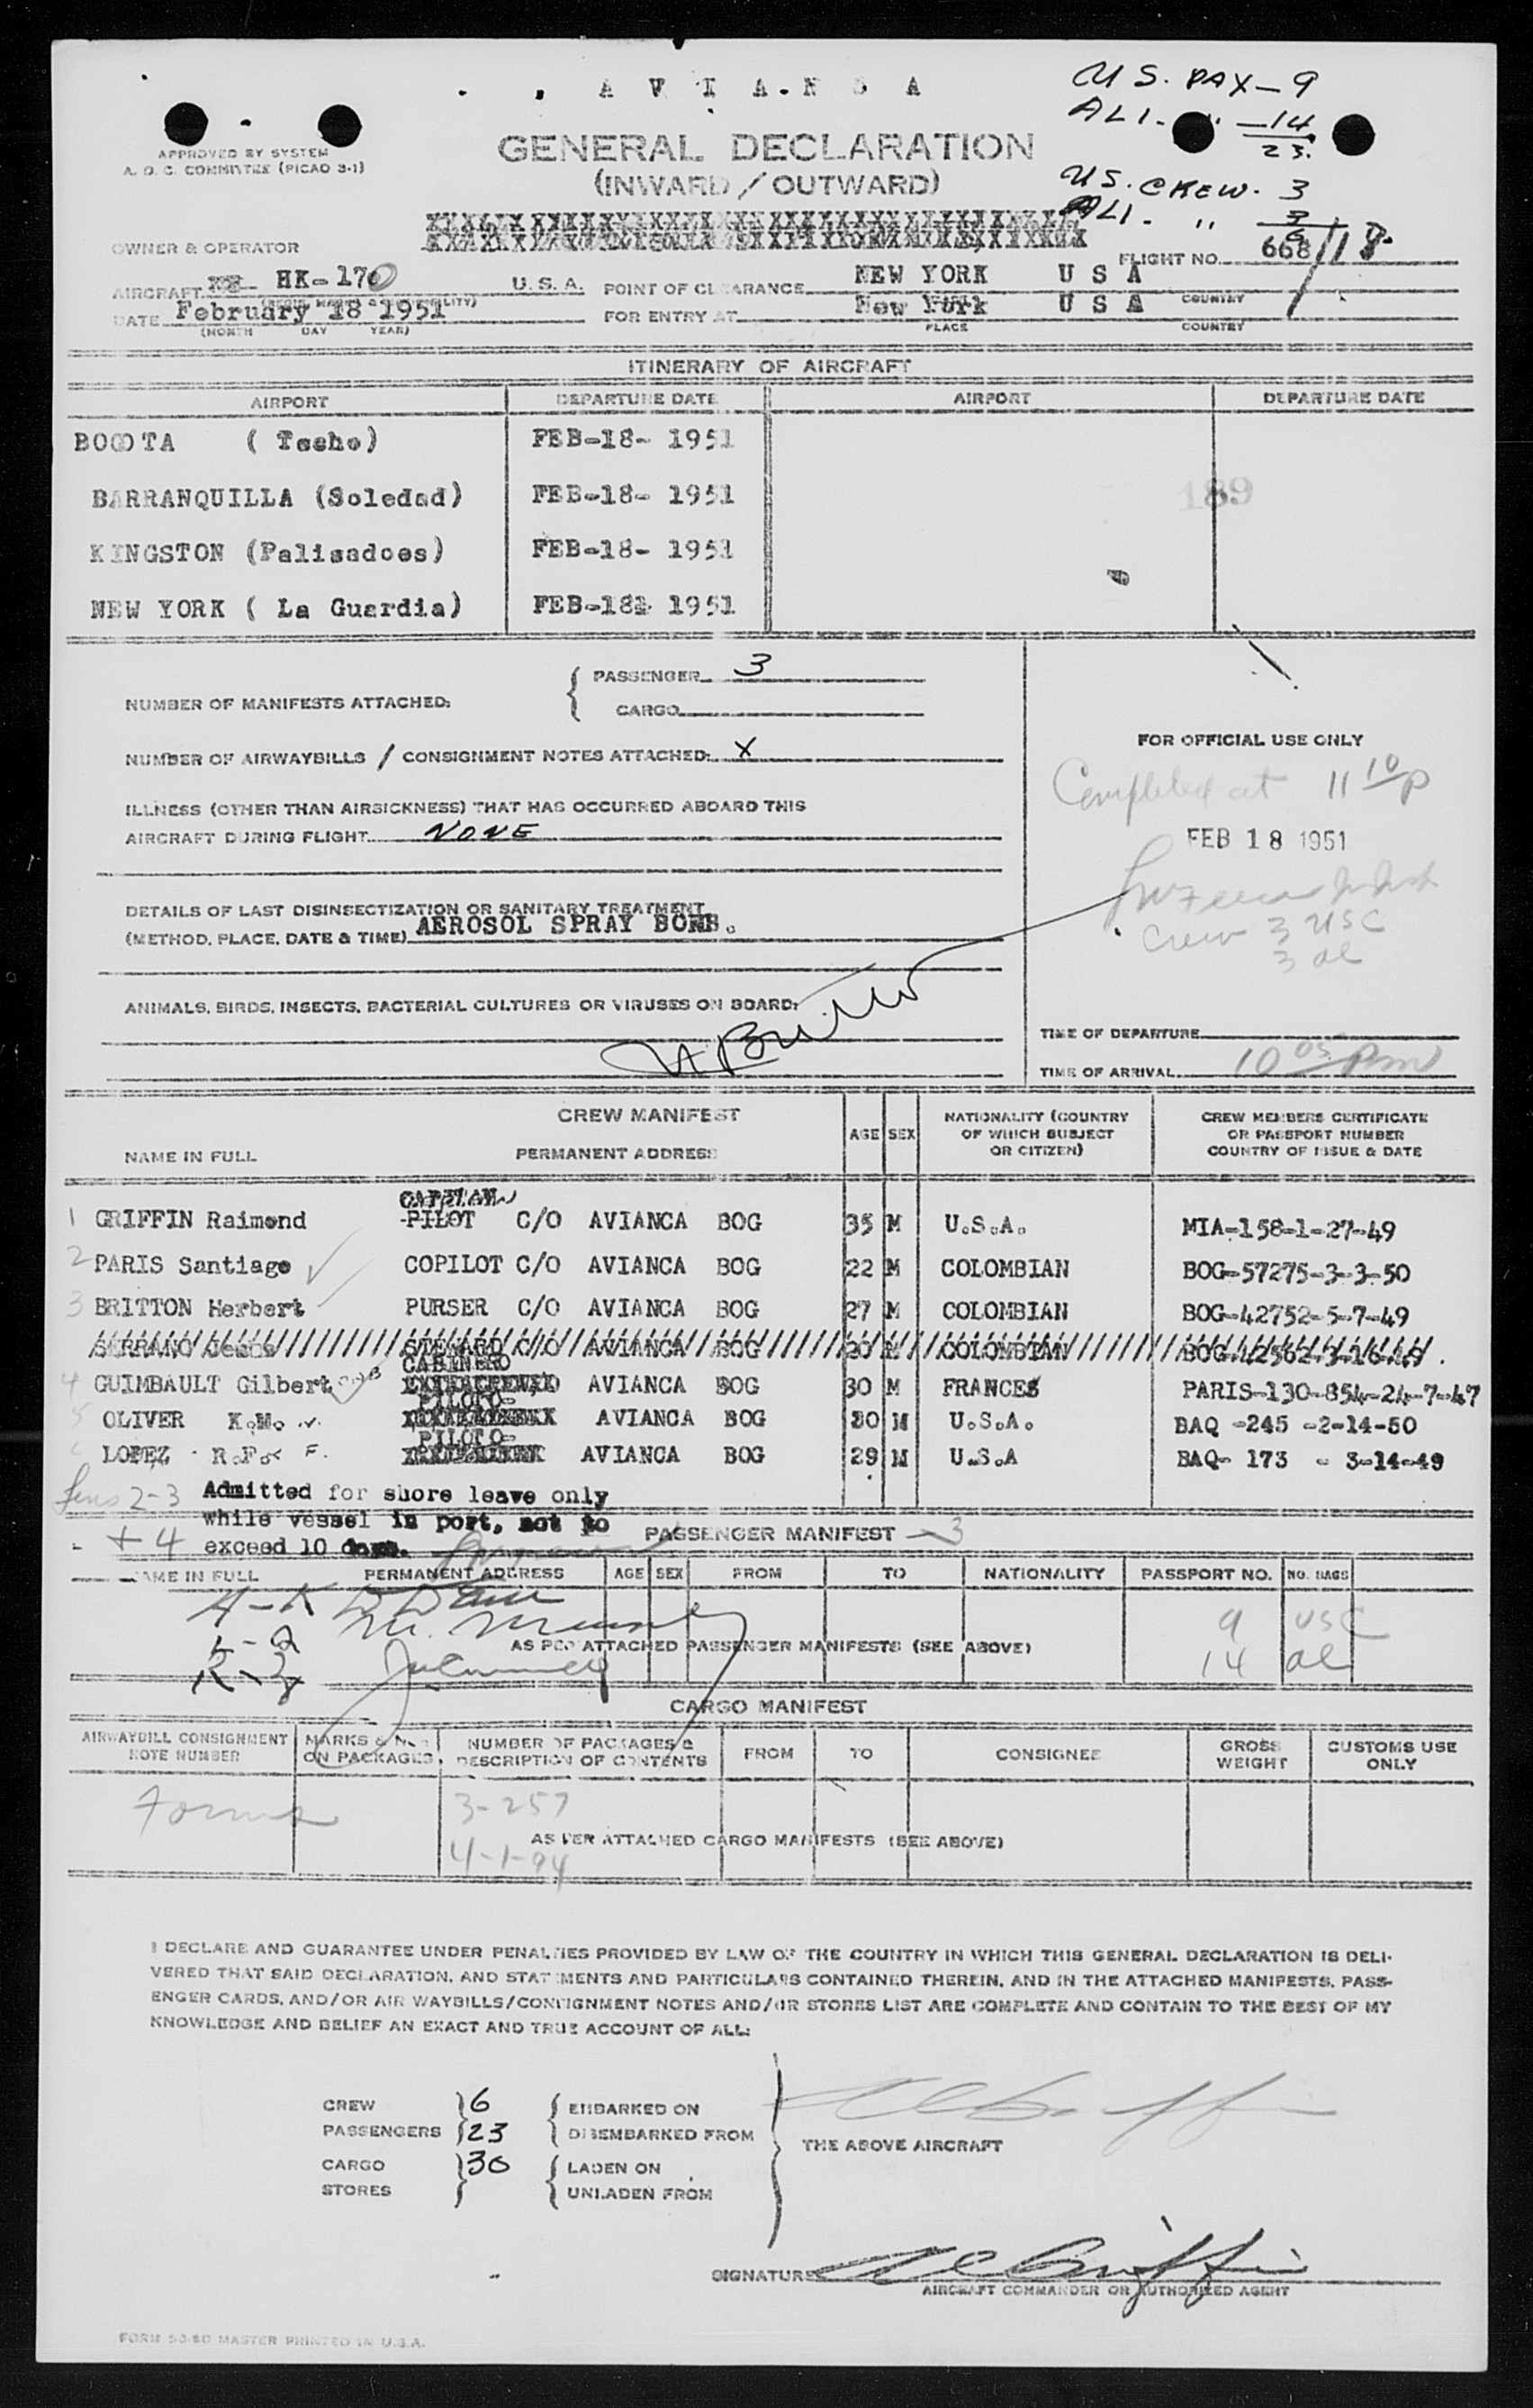 A V I A N C A
U S. PAX - 9
ALI. " - 14
23.
APPROVED BY SYSTEM
A. O. C. COMMITTEE (PICAO 3-1)
GENERAL DECLARATION
(INWARD / OUTWARD)
US. CREW. 3
ALI. " 3
6
OWNER & OPERATOR
FLIGHT NO. 668/18
AIRCRAFT HK-170 U. S. A. POINT OF CLEARANCE NEW YORK U S A
COUNTRY
DATE February 18 1951 FOR ENTRY AT New York U S A
(MONTH DAY YEAR) PLACE COUNTRY
ITINERARY OF AIRCRAFT
AIRPORT DEPARTURE DATE AIRPORT DEPARTURE DATE
BOGOTA ( Techo) FEB-18- 1951
BARRANQUILLA (Soledad) FEB-18- 1951
189
KINGSTON (Palisadoes) FEB-18- 1951
NEW YORK ( La Guardia) FEB-18- 1951
NUMBER OF MANIFESTS ATTACHED: PASSENGER 3
CARGO
NUMBER OF AIRWAYBILLS / CONSIGNMENT NOTES ATTACHED: X
FOR OFFICIAL USE ONLY
Completed at 11 10 p
ILLNESS (OTHER THAN AIRSICKNESS) THAT HAS OCCURRED ABOARD THIS
AIRCRAFT DURING FLIGHT NONE
FEB 18 1951
DETAILS OF LAST DISINSECTIZATION OR SANITARY TREATMENT
(METHOD, PLACE, DATE & TIME) AEROSOL SPRAY BOMB.
Crew 3 USC
3 al
ANIMALS, BIRDS, INSECTS, BACTERIAL CULTURES OR VIRUSES ON BOARD:
H Britton
TIME OF DEPARTURE
TIME OF ARRIVAL 10 05 pm
CREW MANIFEST
NAME IN FULL PERMANENT ADDRESS AGE SEX NATIONALITY (COUNTRY OF WHICH SUBJECT OR CITIZEN) CREW MEMBERS CERTIFICATE OR PASSPORT NUMBER COUNTRY OF ISSUE & DATE
CAPTAIN
1 GRIFFIN Raimond PILOT C/O AVIANCA BOG 35 M U.S.A. MIA-158-1-27-49
2 PARIS Santiago COPILOT C/O AVIANCA BOG 22 M COLOMBIAN BOG-57275-3-3-50
3 BRITTON Herbert PURSER C/O AVIANCA BOG 27 M COLOMBIAN BOG-42752-5-7-49
SERRANO STEWARD C/O AVIANCA BOG 20 M COLOMBIAN
CABINERO
4 GUIMBAULT Gilbert AVIANCA BOG 30 M FRANCES PARIS-130-854-24-7-47
PILOTO-
5 OLIVER K.M. AVIANCA BOG 30 M U.S.A. BAQ -245 -2-14-50
PILOTO-
LOPEZ R.F. F. AVIANCA BOG 29 M U.S.A BAQ- 173 - 3-14-49
2-3 Admitted for shore leave only
while vessel in port, not to
+ 4 exceed 10 days.
PASSENGER MANIFEST - 3
NAME IN FULL PERMANENT ADDRESS AGE SEX FROM TO NATIONALITY PASSPORT NO. NO. BAGS
A-K
9 USC
AS PER ATTACHED PASSENGER MANIFESTS (SEE ABOVE)
14 al
CARGO MANIFEST
AIRWAYBILL CONSIGNMENT NOTE NUMBER MARKS & NOS ON PACKAGES NUMBER OF PACKAGES & DESCRIPTION OF CONTENTS FROM TO CONSIGNEE GROSS WEIGHT CUSTOMS USE ONLY
Forms 3-257
AS PER ATTACHED CARGO MANIFESTS (SEE ABOVE)
4-1-94
I DECLARE AND GUARANTEE UNDER PENALTIES PROVIDED BY LAW OF THE COUNTRY IN WHICH THIS GENERAL DECLARATION IS DELI-
VERED THAT SAID DECLARATION, AND STATEMENTS AND PARTICULARS CONTAINED THEREIN, AND IN THE ATTACHED MANIFESTS, PASS-
ENGER CARDS, AND/OR AIR WAYBILLS/CONSIGNMENT NOTES AND/OR STORES LIST ARE COMPLETE AND CONTAIN TO THE BEST OF MY
KNOWLEDGE AND BELIEF AN EXACT AND TRUE ACCOUNT OF ALL:
CREW 6 EMBARKED ON
PASSENGERS 23 DISEMBARKED FROM
THE ABOVE AIRCRAFT
CARGO 30 LADEN ON
STORES UNLADEN FROM
SIGNATURE
AIRCRAFT COMMANDER OR AUTHORIZED AGENT
FORM 50-60 MASTER PRINTED IN U.S.A.